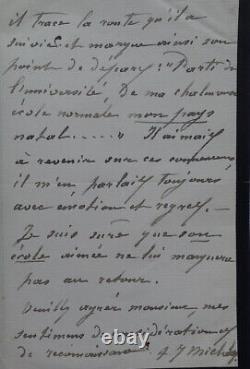 il trace la route qu'il a
suivie et marque ainsi son
point de départ: "Parti de
l'université De ma chaleureuse
école normale mon pays
natal....." Il aimait
à revenir sur ces
il m'en parlait toujours
avec émotion et regret.
Je suis sûre que son
école aimée ne lui manquera
pas au retour.
Veuillez agréer monsieur, mes
sentiments de considération et
de reconnaissance J Michelet
© 123